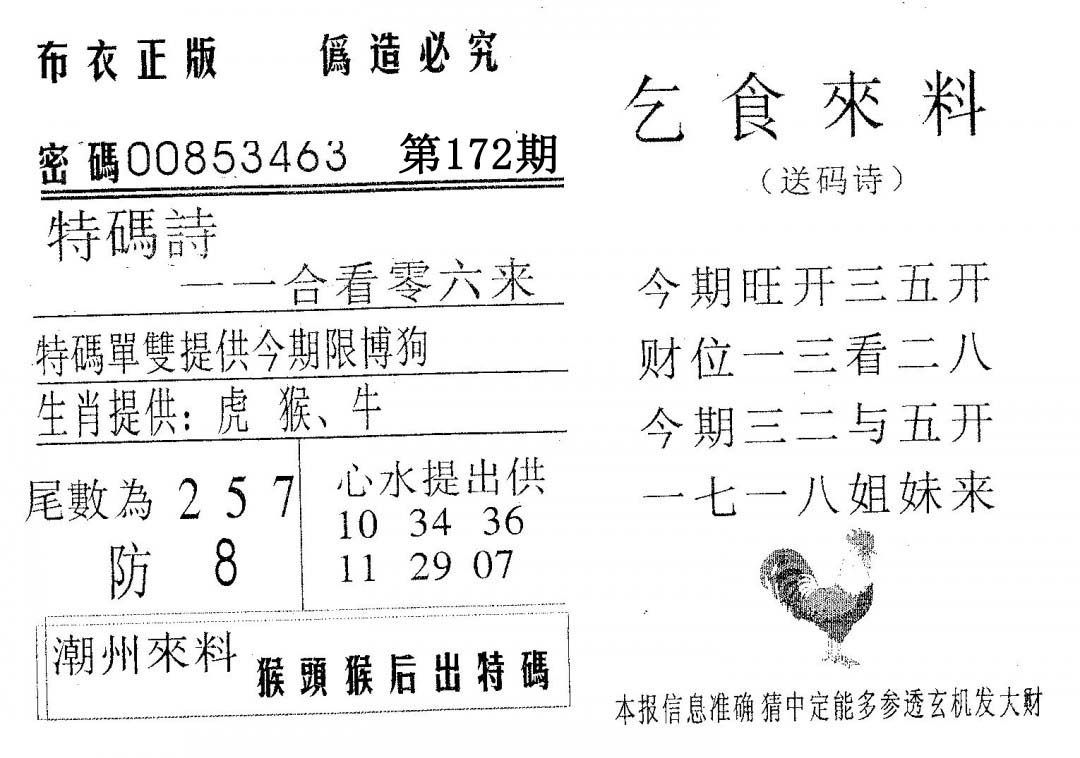 布衣正版 僞造必究
密碼00853463 第172期
特碼詩
一一合看零六来
特碼單雙提供今期限博狗
生肖提供：虎 猴、牛
尾數為 2 5 7
防 8
心水提出供
10 34 36
11 29 07
潮州來料 猴頭猴后出特碼
乞食來料
（送码诗）
今期旺开三五开
财位一三看二八
今期三二与五开
一七一八姐妹来
本报信息准确猜中定能多参透玄机发大财